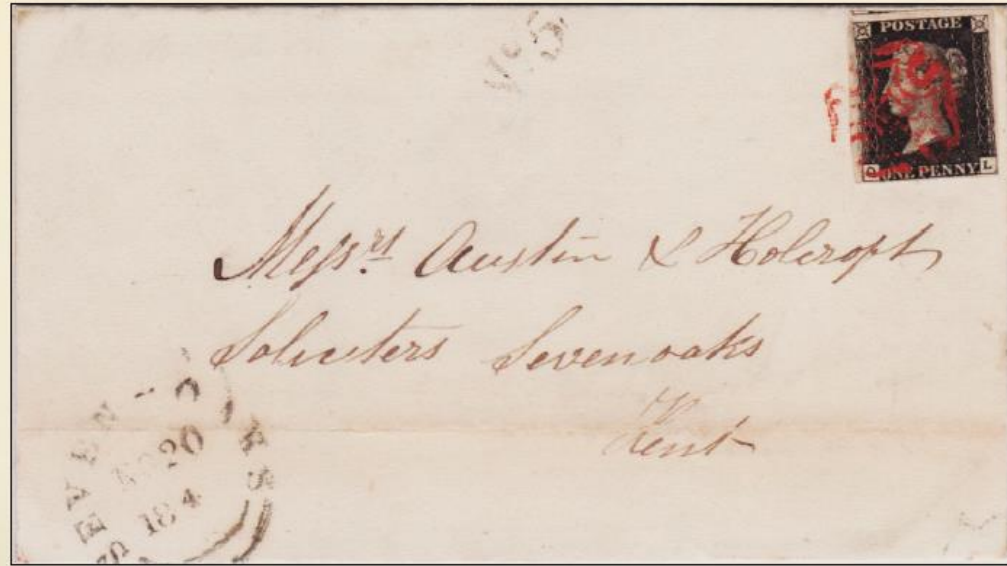 No 5
POSTAGE
ONE PENNY L
Messrs. Austin & Holcroft
Soliciters Sevenoaks
Kent
SEVENO KS
20
184